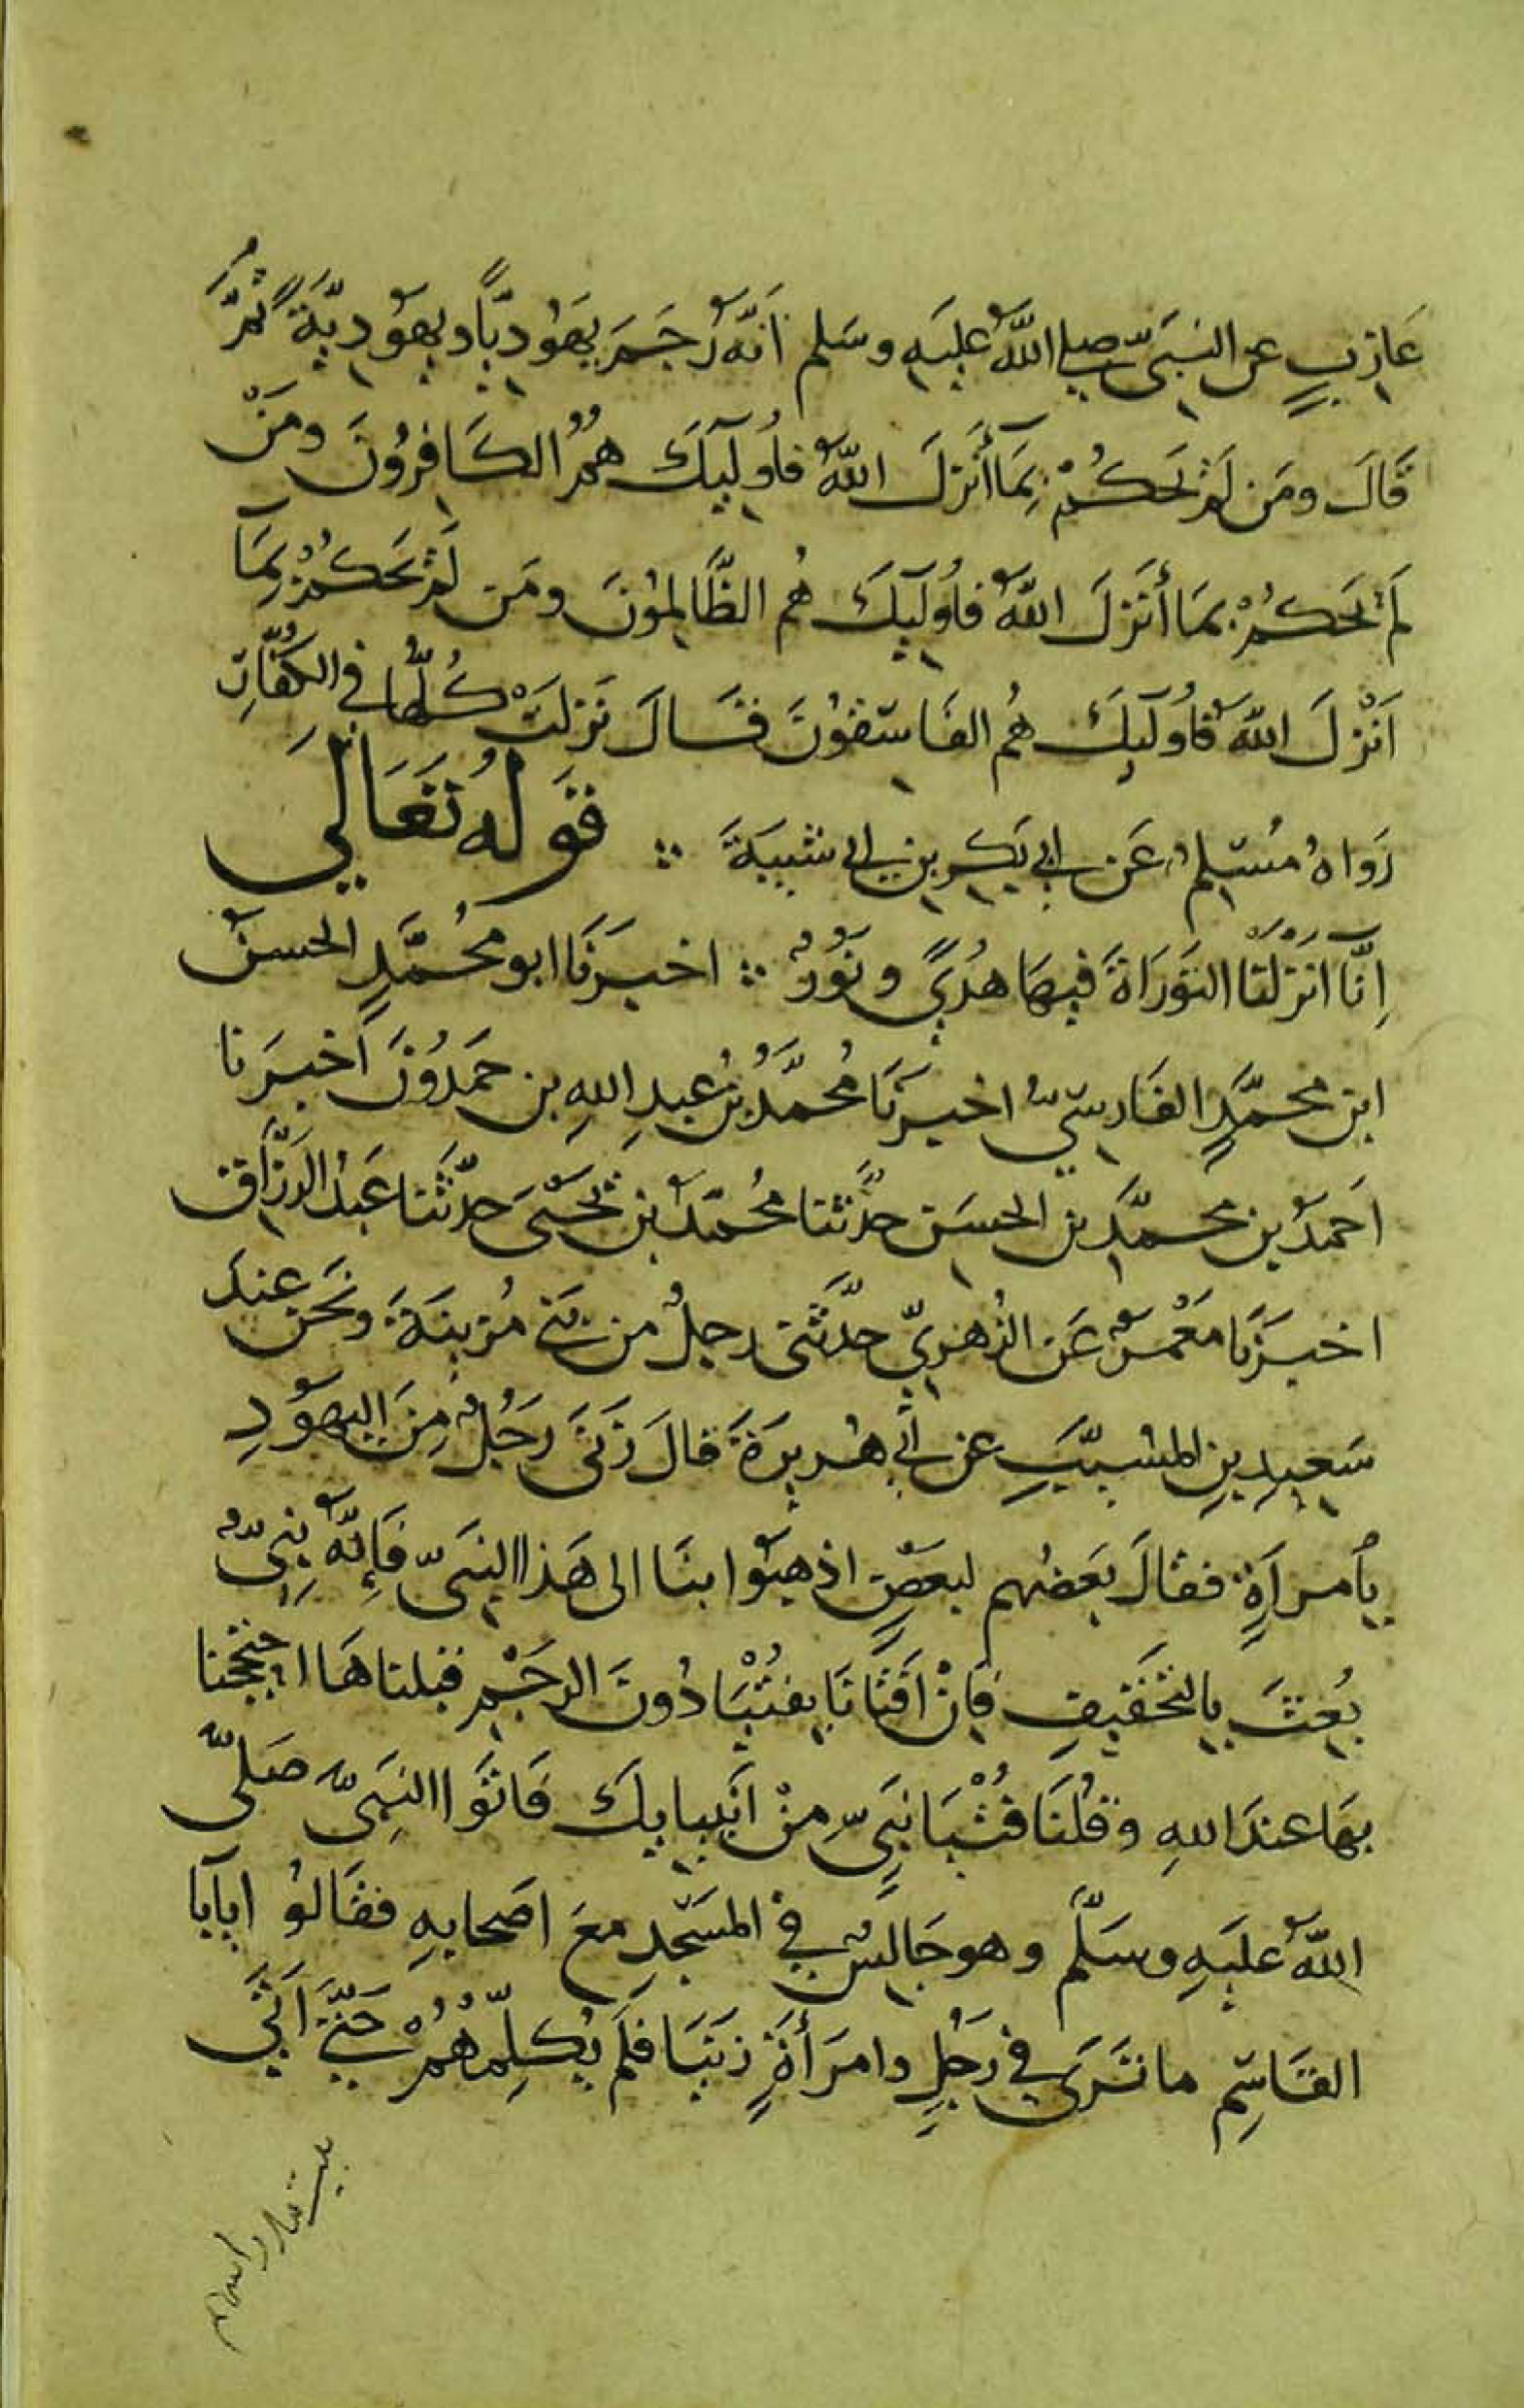 عَازِبٍ عن النبيّ صلى اللهُ عليهِ وسَلم أنّهُ رَجَمَ يَهُوديّاً ويهوديّةً ثمَّ
قَالَ ومَن لَمْ يَحكُمْ بِمَا أَنزَلَ اللهُ فأُوليِكَ هُمُ الكَافِرُونَ ومَنْ
لَمْ يَحكُمْ بمَا أَنزَلَ اللهُ فأُوليِكَ هُم الظَّالِمُونَ ومَن لَمْ يَحكُمْ بِمَآ
اَنْزلَ اللهُ فأُوليِكَ هُم الفَاسِقُونَ فقَالَ نَزلَتْ كُلُّها في الكُفَّارِ
رَواهُ مُسْلِمٌ عَن ابي بَكرِ بنِ ابي شَيبَةَ قَولُهُ تَعَالَى
إِنَّا أَنزَلنَا التَورَاةَ فيهَا هُدًى ونُورٌ اخبرَنَا ابو مُحَمَّدٍ الحسنُ
ابن محمَّدٍ الفَارسِيّ اخبرَنَا مُحمَّدُ بنُ عبدِ اللهِ بن حَمدُونَ أخبرَنا
أحمدُ بن محمَّدِ بن الحسَن حدَّثنا مُحمّدُ بن يَحيَى حدّثَنا عَبدُ الرَزَّاق
اخبرَنَا مَعْمرٌ عَن الزُهريِّ حدَّثَنى رجلٌ من بَني مُزينَةَ ونَحن عِندَ
سَعيدِ بنِ المُسيّبِ عن أبي هُريرَةَ قالَ زَنَى رَجُلٌ مِنَ اليهودِ
بأمرأَةٍ فقالَ بَعضُهم لبعضٍ اذهبُوا بنَا الى هَذا النبيّ فَإنَّهُ نبِيٌّ
بُعِثَ بالتَخفيفِ فَإنْ أفتَانَا بفُتْيَا دُونَ الرجَمِ قبلناهَا احتججنا
بهَا عندَ اللهِ وقُلنَا فُتْيَا نَبيّ مِنْ أنبيايكَ فَاتَوا النبِيّ صَلّى
اللهُ عليهِ وسَلّم وهو جَالسٌ في المَسجدِ معَ اصَحابهِ فقالوُا يا أبا
القَاسِم ما تَرَى في رَجُلٍ وامرَأةٍ زنَيَا فلَم يُكلِّمهُمْ حَتّى أتَى